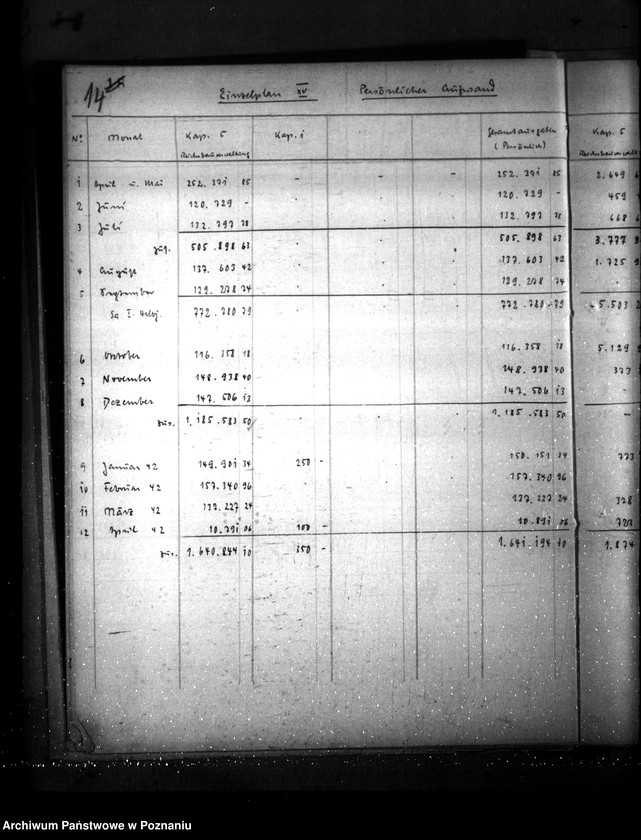 14
Einzelplan XV Persönlicher Aufwand
No Monat Kap. 5 Kap. 1 Gesamtausgaben Kap. 5
Reichsbauverwaltung (Persönlich)
1 April u. Mai 252.371 85 - - - 252.371 85 2.649
2 Juni 120.729 - 120.729 - 459
3 Juli 132.797 78 132.797 78 668
Zus. 505.898 63 505.898 63 3.777
4 August 137.603 42 137.603 42 1.725
5 September 129.278 74 129.278 74
Sa I. Halbj. 772.780 79 772.780 79 5.503
6 Oktober 116.358 18 116.358 18 5.129
7 November 148.938 40 148.938 40 373
8 Dezember 147.506 13 147.506 13 -
Zus. 1.185.583 50 1.185.583 50 -
9 Januar 42 149.901 34 250 - 150.151 34 773
10 Februar 42 157.340 96 157.340 96
11 März 42 137.227 24 137.227 24 378
12 April 42 10.791 06 100 - 10.891 06 723
Zus. 1.640.844 10 350 - 1.641.194 10 1.874
Archiwum Państwowe w Poznaniu